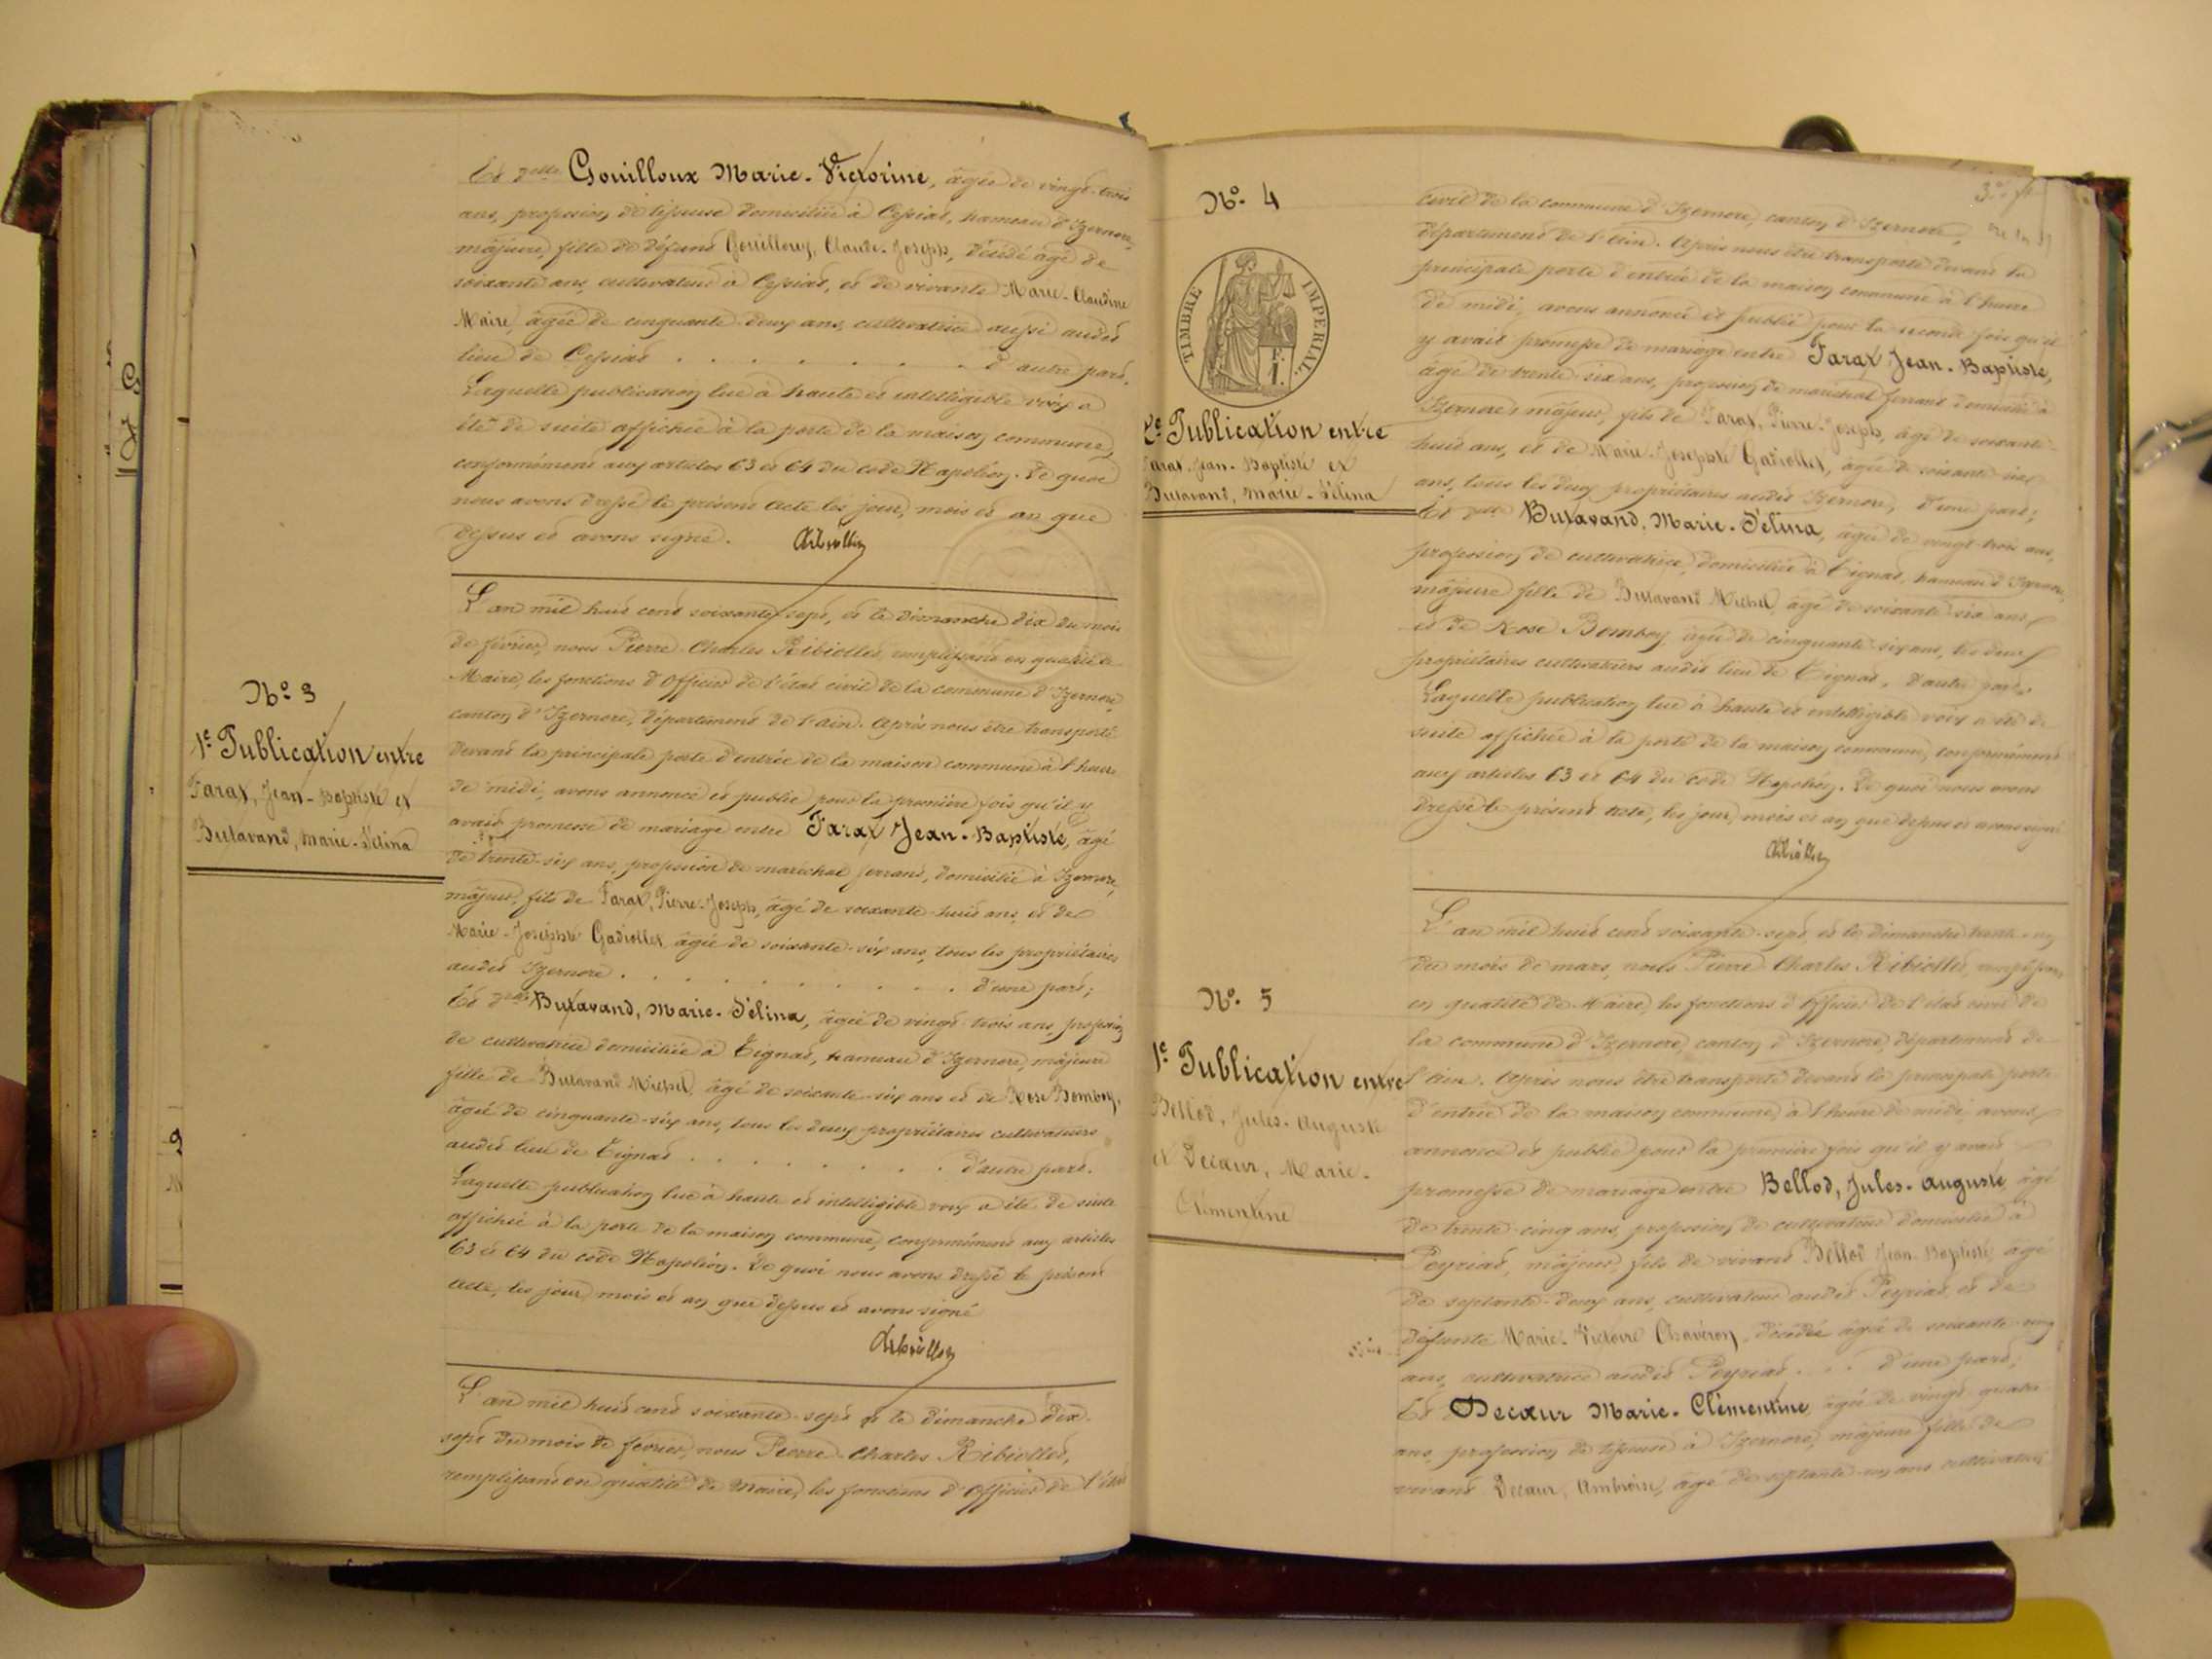 Et Delle Gouilloux Marie-Victorine, âgée de vingt-trois
ans, profession de tisseuse domiciliée à Cessiat, hameau d'Izernore,
majeure, fille de défunt Gouilloux, Claude-Joseph, décédé âgé de
soixante ans, cultivateur à Cessiat, et de vivante Marie-Claudine
Maire, âgée de cinquante-deux ans, cultivatrice aussi audit
lieu de Cessiat . . . . . . . d'autre part.
Laquelle publication lue à haute et intelligible voix a
été de suite affichée à la porte de la maison commune,
conformément aux articles 63 et 64 du code Napoléon. De quoi
nous avons dressé le présent acte les jour, mois et an que
dessus et avons signé.
Nº 3
1e Publication entre
Farax, Jean-Baptiste et
Butavand, Marie-Félina
L'an mil huit cent soixante-sept, et le dimanche dix du mois
de février, nous Pierre-Charles Ribiollet, remplissant en qualité de
Maire, les fonctions d'Officier de l'état civil de la commune d'Izernore,
canton d'Izernore, département de l'ain. Après nous être transporté
devant la principale porte d'entrée de la maison commune à l'heure
de midi, avons annoncé et publié pour la première fois qu'il y
avait promesse de mariage entre Farax Jean-Baptiste, âgé
de trente-six ans, profession de maréchal ferrant, domicilié à Izernore,
majeur, fils de Farax, Pierre-Joseph, âgé de soixante-huit ans, et de
Marie-Josephte Gadiollet, âgée de soixante-six ans, tous les propriétaires
audit Izernore . . . . . . . . . . . d'une part;
Et Delle Butavand, Marie-Félina, âgée de vingt-trois ans, profession
de cultivatrice domiciliée à Tignat, hameau d'Izernore, majeure
fille de Butavand Michel, âgé de soixante-six ans et de Rose Bomboy,
âgée de cinquante-six ans, tous les deux propriétaires cultivateurs
audit lieu de Tignat . . . . . . . . . d'autre part.
Laquelle publication lue à haute et intelligible voix a été de suite
affichée à la porte de la maison commune, conformément aux articles
63 et 64 du code Napoléon. De quoi nous avons dressé le présent
acte, les jour, mois et an que dessus et avons signé
L'an mil huit cent soixante-sept et le dimanche dix-
sept du mois de février, nous Pierre-Charles Ribiollet,
remplissant en qualité de Maire, les fonctions d'Officier de l'état
Nº 4
TIMBRE IMPERIAL.
2e Publication entre
Farax, Jean-Baptiste et
Butavand, Marie-Félina
civil de la commune d'Izernore, canton d'Izernore,
département de l'ain. Après nous être transporté devant la
principale porte d'entrée de la maison commune à l'heure
de midi, avons annoncé et publié pour la seconde fois qu'il
y avait promesse de mariage entre Farax Jean-Baptiste,
âgé de trente-six ans, profession de maréchal ferrant domicilié à
Izernore, majeur, fils de Farax, Pierre-Joseph, âgé de soixante-
huit ans, et de Marie-Josephte Gadiollet, âgée de soixante-six
ans, tous les deux propriétaires audit Izernore, d'une part;
Et Delle Butavand, Marie-Félina, âgée de vingt-trois ans,
profession de cultivatrice, domiciliée à Tignat, hameau d'Izernore,
majeure fille de Butavand Michel, âgé de soixante-six ans,
et de Rose Bomboy, âgée de cinquante-six ans, les deux
propriétaires cultivateurs audit lieu de Tignat, d'autre part.
Laquelle publication lue à haute et intelligible voix a été de
suite affichée à la porte de la maison commune, conformément
aux articles 63 et 64 du code Napoléon. De quoi nous avons
dressé le présent acte, les jour, mois et an que dessus et avons signé
Nº 5
1e Publication entre
Bellod, Jules-Auguste
et Decœur, Marie-
Clémentine
L'an mil huit cent soixante-sept, et le dimanche trente-un
du mois de mars, nous Pierre Charles Ribiollet, remplissant
en qualité de Maire, les fonctions d'Officier de l'état civil de
la commune d'Izernore, canton d'Izernore, département de
l'ain. Après nous être transporté devant la principale porte
d'entrée de la maison commune, à l'heure de midi, avons
annoncé et publié pour la première fois qu'il y avait
promesse de mariage entre Bellod, Jules-Auguste, âgé
de trente-cinq ans, profession de cultivateur domicilié à
Peyriat, majeur, fils de vivant Bellod Jean-Baptiste, âgé
de septante-deux ans, cultivateur audit Peyriat, et de
défunte Marie-Victoire Chavéron, décédée âgée de soixante-cinq
ans, cultivatrice audit Peyriat . . . d'une part;
Et Decœur Marie-Clémentine, âgée de vingt-quatre
ans, profession de tisseuse à Izernore, majeure fille de
vivant Decœur, Ambroise, âgé de septante-un ans cultivateur